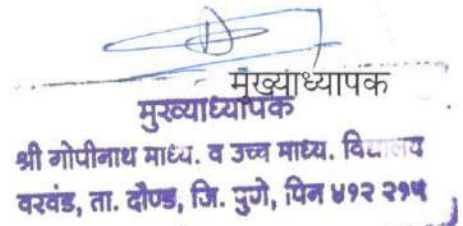 मुख्याध्यापक
मुख्याध्यापक
श्री गोपीनाथ माध्य. व उच्च माध्य. विद्यालय
वरवंड, ता. दौण्ड, जि. पुणे, पिन ४१२ २१५